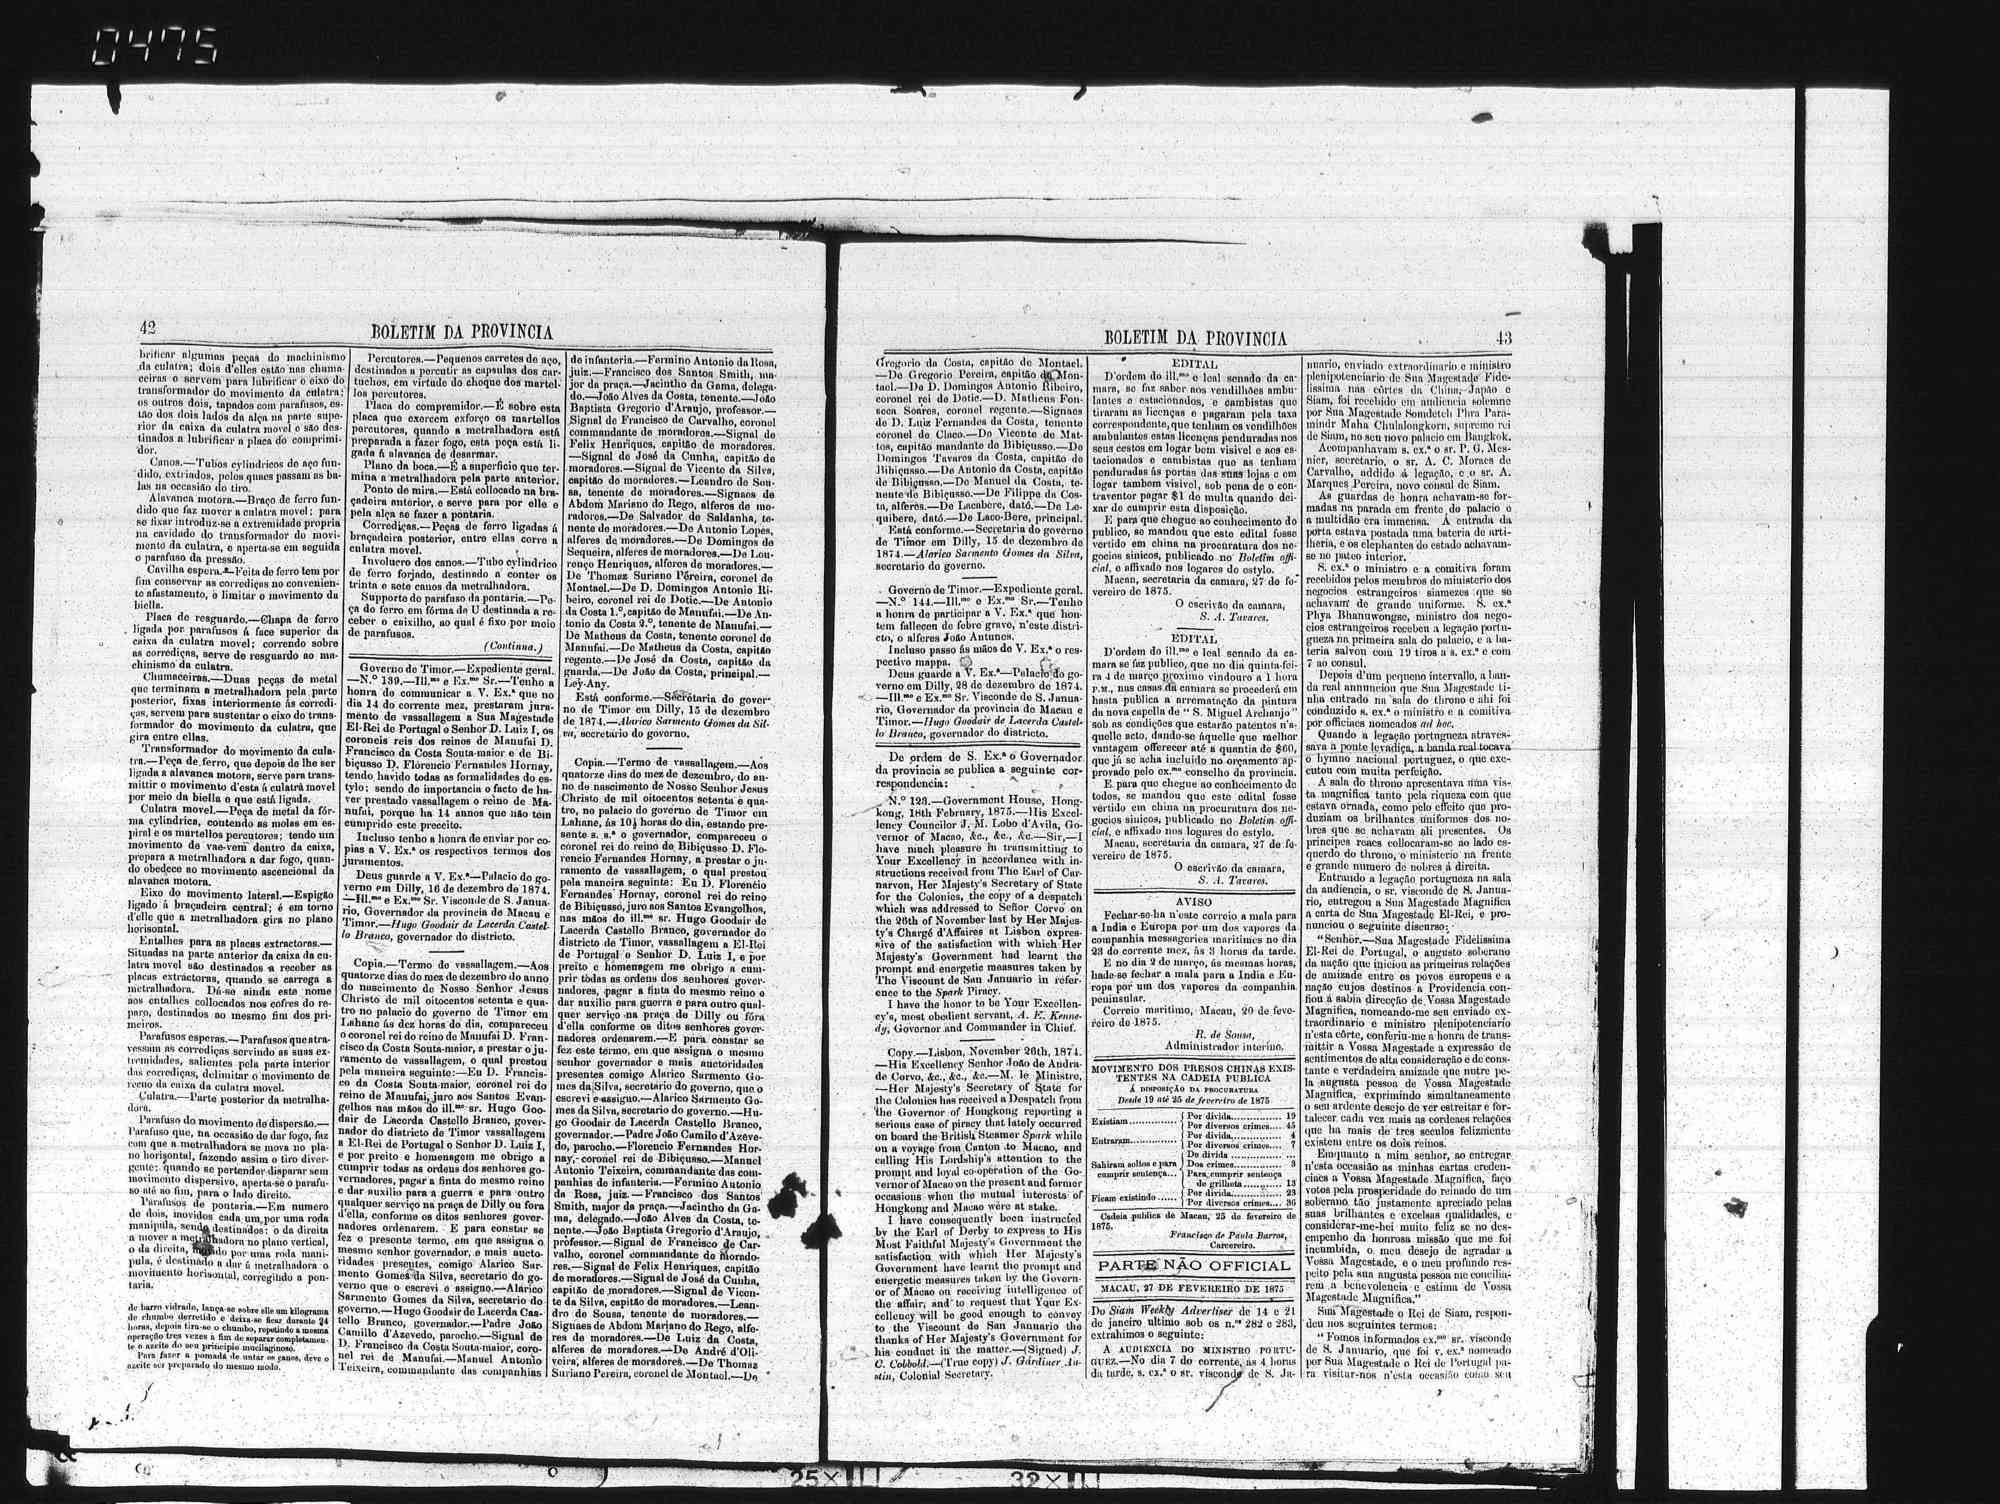 0475
42
BOLETIM DA PROVINCIA
brificar algumas peças do machinismo
da culatra; dois d'elles estão nas chuma-
ceiras e servem para lubrificar o eixo do
transformador do movimento da culatra;
os outros dois, tapados com parafusos, es-
tão dos dois lados da alça na parte supe-
rior da caixa da culatra movel e são des-
tinados a lubrificar a placa do comprimi-
dor.
Canos.—Tubos cylindricos de aço fun-
dido, extriados, pelos quaes passam as ba-
las na occasião do tiro.
Alavanca motora.—Braço de ferro fun-
dido que faz mover a culatra movel; para
se fixar introduz-se a extremidade propria
na cavidade do transformador do movi-
mento da culatra, e aperta-se em seguida
o parafuso da pressão.
Cavilha espera.—Feita de ferro tem por
fim conservar as corrediças no convenien-
te afastamento, e limitar o movimento da
biella.
Placa de resguardo.—Chapa de ferro
ligada por parafusos á face superior da
caixa da culatra movel; correndo sobre
as corrediças, serve de resguardo ao ma-
chinismo da culatra.
Chumaceiras.—Duas peças de metal
que terminam a metralhadora pela parte
posterior, fixas interiormente ás corredi-
ças, servem para sustentar o eixo do trans-
formador do movimento da culatra, que
gira entre ellas.
Transformador do movimento da cula-
tra.—Peça de ferro, que depois de lhe ser
ligada a alavanca motora, serve para trans-
mittir o movimento d'esta á culatra movel
por meio da biella a que está ligada.
Culatra movel.—Peça de metal da fór-
ma cylindrica, contendo as molas em es-
piral e os martellos percutores; tendo um
movimento de vae-vem dentro da caixa,
prepara a metralhadora a dar fogo, quan-
do obedece ao movimento ascencional da
alavanca motora.
Eixo do movimento lateral.—Espigão
ligado á braçadeira central; é em torno
d'elle que a metralhadora gira no plano
horisontal.
Entalhes para as placas extractoras.—
Situadas na parte anterior da caixa da cu-
latra movel são destinados a receber as
placas extractoras, quando se carrega a
metralhadora. Dá-se ainda este nome
aos entalhes collocados nos cofres do re-
paro, destinados ao mesmo fim dos pri-
meiros.
Parafusos esperas.—Parafusos que atra-
vessam as corrediças servindo as suas ex-
tremidades, salientes pela parte interior
das corrediças, delimitar o movimento de
recuo da caixa da culatra movel.
Culatra.—Parte posterior da metralha-
dora.
Parafuso do movimento de dispersão.—
Parafuso que, na occasião de dar fogo, faz
com que a metralhadora se mova no pla-
no horisontal, fazendo assim o tiro diver-
gente; quando se pertender disparar sem
movimento dispersivo, aperta-se o parafu-
so até ao fim, para o lado direito.
Parafusos de pontaria.—Em numero
de dois, movidos cada um por uma roda
manipula, sendo destinados: o da direita
a mover a metralhadora no plano vertical,
o da direita, movido por uma roda mani-
pula, é destinado a dar á metralhadora o
movimento horisontal, corregindo a pon-
taria.
de barro vidrado, lança-se sobre elle um kilograma
de chumbo derretido e deixa-se ficar durante 24
horas, depois tira-se o chumbo, repetindo a mesma
operação tres vezes a fim de separar completamen-
te o azeite do seu principio mucilaginoso.
Para fazer a pomada de untar os canos, deve o
azeite ser preparado do mesmo modo.
Percutores.—Pequenos carretes de aço,
destinados a percutir as capsulas dos car-
tuchos, em virtude do choque dos martel-
los percutores.
Placa do compremidor.—É sobre esta
placa que exercem exforço os martellos
percutores, quando a metralhadora está
preparada a fazer fogo, esta peça está li-
gada á alavanca de desarmar.
Plano da boca.—É a superficie que ter-
mina a metralhadora pela parte anterior.
Ponto de mira.—Está collocado na bra-
çadeira anterior, e serve para por elle e
pela alça se fazer a pontaria.
Corrediças.—Peças de ferro ligadas á
braçadeira posterior, entre ellas corre a
culatra movel.
Involucro dos canos.—Tubo cylindrico
de ferro forjado, destinado a conter os
trinta e sete canos da metralhadora.
Supporte do parafuso da pontaria.—Pe-
ça do ferro em fórma de U destinada a re-
ceber o caixilho, ao qual é fixo por meio
de parafusos.
(Continua.)
Governo de Timor.—Expediente geral.
—N.º 139.—Ill.mo e Ex.mo Sr.—Tenho a
honra de communicar a V. Ex.ª que no
dia 14 do corrente mez, prestaram jura-
mento de vassallagem a Sua Magestade
El-Rei de Portugal o Senhor D. Luiz I, os
coroneis reis dos reinos de Manufai D.
Francisco da Costa Souta-maior e de Bi-
biçusso D. Florencio Fernandes Hornay,
tendo havido todas as formalidades do es-
tylo; sendo de importancia o facto de ha-
ver prestado vassallagem o reino de Ma-
nufai, porque ha 14 annos que não tem
cumprido este preceito.
Incluso tenho a honra de enviar por co-
pias a V. Ex.ª os respectivos termos dos
juramentos.
Deus guarde a V. Ex.ª—Palacio do go-
verno em Dilly, 16 de dezembro de 1874.
—Ill.mo e Ex.mo Sr. Visconde de S. Janua-
rio, Governador da provincia de Macau e
Timor.—Hugo Goodair de Lacerda Castel-
lo Branco, governador do districto.
Copia.—Termo de vassallagem.—Aos
quatorze dias do mez de dezembro do anno
do nascimento de Nosso Senhor Jesus
Christo de mil oitocentos setenta e qua-
tro no palacio do governo de Timor em
Lahane ás dez horas do dia, compareceu
o coronel rei do reino de Manufai D. Fran-
cisco da Costa Souta-maior, a prestar o ju-
ramento de vassallagem, o qual prestou
pela maneira seguinte:—Eu D. Francis-
co da Costa Souta-maior, coronel rei do
reino de Manufai, juro aos Santos Evan-
gelhos nas mãos do ill.mo sr. Hugo Goo-
dair de Lacerda Castello Branco, gover-
nador do districto de Timor vassallagem
a El-Rei de Portugal o Senhor D. Luiz I,
e por preito e homenagem me obrigo a
cumprir todas as ordens dos senhores go-
vernadores, pagar a finta do mesmo reino
e dar auxilio para a guerra e para outro
qualquer serviço na praça de Dilly ou fóra
d'ella, conforme os ditos senhores gover-
nadores ordenarem. E para constar se
fez o presente termo, em que assigna o
mesmo senhor governador, e mais aucto-
ridades presentes, comigo Alarico Sar-
mento Gomes da Silva, secretario do go-
verno que o escrevi e assigno.—Alarico
Sarmento Gomes da Silva, secretario do
governo.—Hugo Goodair de Lacerda Cas-
tello Branco, governador.—Padre João
Camillo d'Azevedo, parocho.—Signal de
D. Francisco da Costa Souta-maior, coro-
nel rei de Manufai.—Manuel Antonio
Teixeira, commandante das companhias
de infanteria.—Fermino Antonio da Rosa,
juiz.—Francisco dos Santos Smith, ma-
jor da praça.—Jacintho da Gama, delega-
do.—João Alves da Costa, tenente.—João
Baptista Gregorio d'Araujo, professor.—
Signal de Francisco de Carvalho, coronel
commandante de moradores.—Signal de
Felix Henriques, capitão de moradores.
—Signal de José da Cunha, capitão de
moradores.—Signal de Vicente da Silva,
capitão de moradores.—Leandro de Sou-
sa, tenente de moradores.—Signaes de
Abdom Mariano do Rego, alferes de mo-
radores.—De Salvador de Saldanha, te-
nente de moradores.—De Antonio Lopes,
alferes de moradores.—De Domingos de
Sequeira, alferes de moradores.—De Lou-
renço Henriques, alferes de moradores.—
De Thomaz Suriano Pereira, coronel de
Montael.—De D. Domingos Antonio Ri-
beiro, coronel rei de Dotic.—De Antonio
da Costa 1.º, capitão de Manufai.—De An-
tonio da Costa 2.º, tenente de Manufai.—
De Matheus da Costa, tenente coronel de
Manufai.—De Matheus da Costa, capitão
regente.—De José da Costa, capitão da
guarda.—De João da Costa, principal.—
Ley-Any.
Está conforme.—Secretaria do gover-
no de Timor em Dilly, 15 de dezembro
de 1874.—Alarico Sarmento Gomes da Sil-
va, secretario do governo.
Copia.—Termo de vassallagem.—Aos
quatorze dias do mez de dezembro, do an-
no de nascimento de Nosso Senhor Jesus
Christo de mil oitocentos setenta e qua-
tro, no palacio do governo de Timor em
Lahane, ás 10½ horas do dia, estando pre-
sente s. s.ª o governador, compareceu o
coronel rei do reino de Bibiçusso D. Flo-
rencio Fernandes Hornay, a prestar o ju-
ramento de vassallagem, o qual prestou
pela maneira seguinte: Eu D. Florencio
Fernandes Hornay, coronel rei do reino
de Bibiçusso, juro aos Santos Evangelhos,
nas mãos do ill.mo sr. Hugo Goodair de
Lacerda Castello Branco, governador do
districto de Timor, vassallagem a El-Rei
de Portugal o Senhor D. Luiz I, e por
preito e homenagem me obrigo a cum-
prir todas as ordens dos senhores gover-
nadores, pagar a finta do mesmo reino e
dar auxilio para guerra e para outro qual-
quer serviço na praça de Dilly ou fóra
d'ella conforme os ditos senhores gover-
nadores ordenarem.—E para constar se
fez este termo, em que assigna o mesmo
senhor governador e mais auctoridades
presentes comigo Alarico Sarmento Go-
mes da Silva, secretário do governo, que o
escrevi e assigno.—Alarico Sarmento Go-
mes da Silva, secretario do governo.—Hu-
go Goodair de Lacerda Castello Branco,
governador.—Padre João Camilo d'Azeve-
do, parocho.—Florencio Fernandes Hor-
nay, coronel rei de Bibiçusso.—Manuel
Antonio Teixeira, commandante das com-
panhias de infanteria.—Fermino Antonio
da Rosa, juiz.—Francisco dos Santos
Smith, major da praça.—Jacintho da Ga-
ma, delegado.—João Alves da Costa, te-
nente.—João Baptista Gregorio d'Araujo,
professor.—Signal de Francisco de Car-
valho, coronel commandante de morado-
res.—Signal de Felix Henriques, capitão
de moradores.—Signal de José da Cunha,
capitão de moradores.—Signal de Vicen-
te da Silva, capitão de moradores.—Lean-
dro de Sousa, tenente de moradores.—
Signaes de Abdom Mariano do Rego, alfe-
res de moradores.—De Luiz da Costa,
alferes de moradores.—De André d'Oli-
veira, alferes de moradores.—De Thomaz
Suriano Pereira, coronel de Montael.—De
BOLETIM DA PROVINCIA
43
Gregorio da Costa, capitão de Montael.
—De Gregorio Pereira, capitão de Mon-
tael.—De D. Domingos Antonio Ribeiro,
coronel rei de Dotic.—D. Matheus Fon-
seca Soares, coronel regente.—Signaes
de D. Luiz Fernandes da Costa, tenente
coronel de Claco.—De Vicente de Mat-
tos, capitão mandante de Bibiçusso.—De
Domingos Tavares da Costa, capitão de
Bibiçusso.—De Antonio da Costa, capitão
de Bibiçusso.—De Manuel da Costa, te-
nente de Bibiçusso.—De Filippe da Cos-
ta, alferes.—De Lacabere, dató.—De Le-
quibere, dató.—De Laco-Bere, principal.
Está conforme.—Secretaria do governo
de Timor em Dilly, 15 de dezembro de
1874.—Alarico Sarmento Gomes da Silva,
secretario do governo.
Governo de Timor.—Expediente geral.
—N.º 144.—Ill.mo e Ex.mo Sr.—Tenho
a honra de participar a V. Ex.ª que hon-
tem falleceu de febre grave, n'este distri-
cto, o alferes João Antunes.
Incluso passo ás mãos de V. Ex.ª o res-
pectivo mappa.
Deus guarde a V. Ex.ª—Palacio do go-
verno em Dilly, 28 de dezembro de 1874.
—Ill.mo e Ex.mo Sr. Visconde de S. Janua-
rio, Governador da provincia de Macau e
Timor.—Hugo Goodair de Lacerda Castel-
lo Branco, governador do districto.
De ordem de S. Ex.ª o Governador
da provincia se publica a seguinte cor-
respondencia:
N.º 123.—Government House, Hong-
kong, 18th February, 1875.—His Excel-
lency Councilor J. M. Lobo d'Avila, Go-
vernor of Macao, &c., &c., &c.—Sir,—I
have much pleasure in transmitting to
Your Excellency in accordance with in-
structions received from The Earl of Car-
narvon, Her Majesty's Secretary of State
for the Colonies, the copy of a despatch
which was addressed to Señor Corvo on
the 26th of November last by Her Majes-
ty's Chargé d'Affaires at Lisbon expres-
sive of the satisfaction with which Her
Majesty's Government had learnt the
prompt and energetic measures taken by
The Viscount de San Januario in refer-
ence to the Spark Piracy.
I have the honor to be Your Excellen-
cy's, most obedient servant, A. E. Kenne-
dy, Governor and Commander in Chief.
Copy.—Lisbon, November 26th, 1874.
—His Excellency Senhor João de Andra-
de Corvo, &c., &c., &c.—M. le Ministre,
—Her Majesty's Secretary of State for
the Colonies has received a Despatch from
the Governor of Hongkong reporting a
serious case of piracy that lately occurred
on board the British Steamer Spark while
on a voyage from Canton to Macao, and
calling His Lordship's attention to the
prompt and loyal co-operation of the Go-
vernor of Macao on the present and former
occasions when the mutual interests of
Hongkong and Macao were at stake.
I have consequently been instructed
by the Earl of Derby to express to His
Most Faithful Majesty's Government the
satisfaction with which Her Majesty's
Government have learnt the prompt and
energetic measures taken by the Govern-
or of Macao on receiving intelligence of
the affair, and to request that Your Ex-
cellency will be good enough to convey
to the Viscount de San Januario the
thanks of Her Majesty's Government for
his conduct in the matter.—(Signed) J.
C. Cobbold.—(True copy) J. Gardiner Au-
stin, Colonial Secretary.
EDITAL
D'ordem do ill.mo e leal senado da ca-
mara, se faz saber aos vendilhões ambu-
lantes e estacionados, e cambistas que
tiraram as licenças e pagaram pela taxa
correspondente, que tenham os vendilhões
ambulantes estas licenças penduradas nos
seus cestos em logar bem visivel e aos es-
tacionados e cambistas que as tenham
penduradas ás portas das suas lojas e em
logar tambem visivel, sob pena de o con-
traventor pagar $1 de multa quando dei-
xar de cumprir esta disposição.
E para que chegue ao conhecimento do
publico, se mandou que este edital fosse
vertido em china na procuratura dos ne-
gocios sinicos, publicado no Boletim offi-
cial, e affixado nos logares do estylo.
Macau, secretaria da camara, 27 de fe-
vereiro de 1875.
O escrivão da camara,
S. A. Tavares.
EDITAL
D'ordem do ill.mo e leal senado da ca-
mara se faz publico, que no dia quinta-fei-
ra 4 de março proximo vindouro a 1 hora
P.M., nas casas da camara se procederá em
hasta publica a arrematação da pintura
da nova capella de "S. Miguel Archanjo"
sob as condições que estarão patentes n'a-
quelle acto, dando-se áquelle que melhor
vantagem offerecer até a quantia de $60,
que já se acha incluido no orçamento ap-
provado pelo ex.mo conselho da provincia.
E para que chegue ao conhecimento de
todos, se mandou que este edital fosse
vertido em china na procuratura dos ne-
gocios sinicos, publicado no Boletim offi-
cial, e affixado nos logares do estylo.
Macau, secretaria da camara, 27 de fe-
vereiro de 1875.
O escrivão da camara,
S. A. Tavares.
AVISO
Fechar-se-ha n'este correio a mala para
a India e Europa por um dos vapores da
companhia messageries maritimes no dia
23 do corrente mez, ás 3 horas da tarde.
E no dia 2 de março, ás mesmas horas,
hade-se fechar a mala para a India e Eu-
ropa por um dos vapores da companhia
peninsular.
Correio maritimo, Macau, 20 de feve-
reiro de 1875.
R. de Sousa,
Administrador interino.
MOVIMENTO DOS PRESOS CHINAS EXIS-
TENTES NA CADEIA PUBLICA
Á DISPOSIÇÃO DA PROCURATURA
Desde 19 até 25 de fevereiro de 1875
Existiam { Por divida 19
Por diversos crimes 45
Entraram { Por divida 4
Por diversos crimes 7
Sahiram soltos e para cumprir sentença { De divida ...
Dos crimes 3
Para cumprir sentença
de grilheta 13
Ficam existindo { Por divida 23
Por diversos crimes 36
Cadeia publica de Macau, 25 de fevereiro de
1875.
Francisco de Paula Barros,
Carcereiro.
PARTE NÃO OFFICIAL
MACAU, 27 DE FEVEREIRO DE 1875
Do Siam Weekly Advertiser de 14 e 21
de janeiro ultimo sob os n.os 282 e 283,
extrahimos o seguinte:
A AUDIENCIA DO MINISTRO PORTU-
GUEZ.—No dia 7 do corrente, ás 4 horas
da tarde, s. ex.ª o sr. visconde de S. Ja-
nuario, enviado extraordinario e ministro
plenipotenciario de Sua Magestade Fide-
lissima nas côrtes da China, Japão e
Siam, foi recebido em audiencia solemne
por Sua Magestade Somdetch Phra Para-
mindr Maha Chulalongkorn, supremo rei
de Siam, no seu novo palacio em Bangkok.
Acompanhavam s. ex.ª o sr. P. G. Mes-
nier, secretario, o sr. A. C. Moraes de
Carvalho, addido á legação, e o sr. A.
Marques Pereira, novo consul de Siam.
As guardas de honra achavam-se for-
madas na parada em frente do palacio e
a multidão era immensa. Á entrada da
porta estava postada uma bateria de arti-
lheria, e os elephantes do estado achavam-
se no pateo interior.
S. ex.ª o ministro e a comitiva foram
recebidos pelos membros do ministerio dos
negocios estrangeiros siamezes que se
achavam de grande uniforme. S. ex.ª
Phya Bhanuwongse, ministro dos nego-
cios estrangeiros recebeu a legação portu-
gueza na primeira sala do palacio, e a ba-
teria salvou com 19 tiros a s. ex.ª e com
7 ao consul.
Depois d'um pequeno intervallo, a ban-
da real annunciou que Sua Magestade ti-
nha entrado na sala do throno e ahi foi
conduzido s. ex.ª o ministro e a comitiva
por officiaes nomeados ad hoc.
Quando a legação portugueza atraves-
sava a ponte levadiça, a banda real tocava
o hymno nacional portuguez, o que exe-
cutou com muita perfeição.
A sala do throno apresentava uma vis-
ta magnifica tanto pela riqueza com que
estava ornada, como pelo effeito que pro-
duziam os brilhantes uniformes dos no-
bres que se achavam ali presentes. Os
principes reaes collocaram-se ao lado es-
querdo do throno, o ministerio na frente
e grande numero de nobres á direita.
Entrando a legação portugueza na sala
da audiencia, o sr. visconde de S. Janua-
rio, entregou a Sua Magestade Magnifica
a carta de Sua Magestade El-Rei, e pro-
nunciou o seguinte discurso:
"Senhor.—Sua Magestade Fidelissima
El-Rei de Portugal, o augusto soberano
da nação que iniciou as primeiras relações
de amizade entre os povos europeus e a
nação cujos destinos a Providencia con-
fiou á sabia direcção de Vossa Magestade
Magnifica, nomeando-me seu enviado ex-
traordinario e ministro plenipotenciario
n'esta côrte, conferiu-me a honra de trans-
mittir a Vossa Magestade a expressão de
sentimentos de alta consideração e de cons-
tante e verdadeira amizade que nutre pe-
la augusta pessoa de Vossa Magestade
Magnifica, exprimindo simultaneamente
o seu ardente desejo de ver estreitar e for-
talecer cada vez mais as cordeaes relações
que ha mais de tres seculos felizmente
existem entre os dois reinos.
Emquanto a mim senhor, ao entregar
n'esta occasião as minhas cartas creden-
ciaes a Vossa Magestade Magnifica, faço
votos pela prosperidade do reinado de um
soberano tão justamente apreciado pelas
suas brilhantes e excelsas qualidades, e
considerar-me-hei muito feliz se no des-
empenho da honrosa missão que me foi
incumbida, o meu desejo de agradar a
Vossa Magestade, e o meu profundo res-
peito pela sua augusta pessoa me concilia-
rem a benevolencia e estima de Vossa
Magestade Magnifica."
Sua Magestade o Rei de Siam, respon-
deu nos seguintes termos:
"Fomos informados ex.mo sr. visconde
de S. Januario, que foi v. ex.ª nomeado
por Sua Magestade o Rei de Portugal pa-
ra visitar-nos n'esta occasião como seu
25×
32×